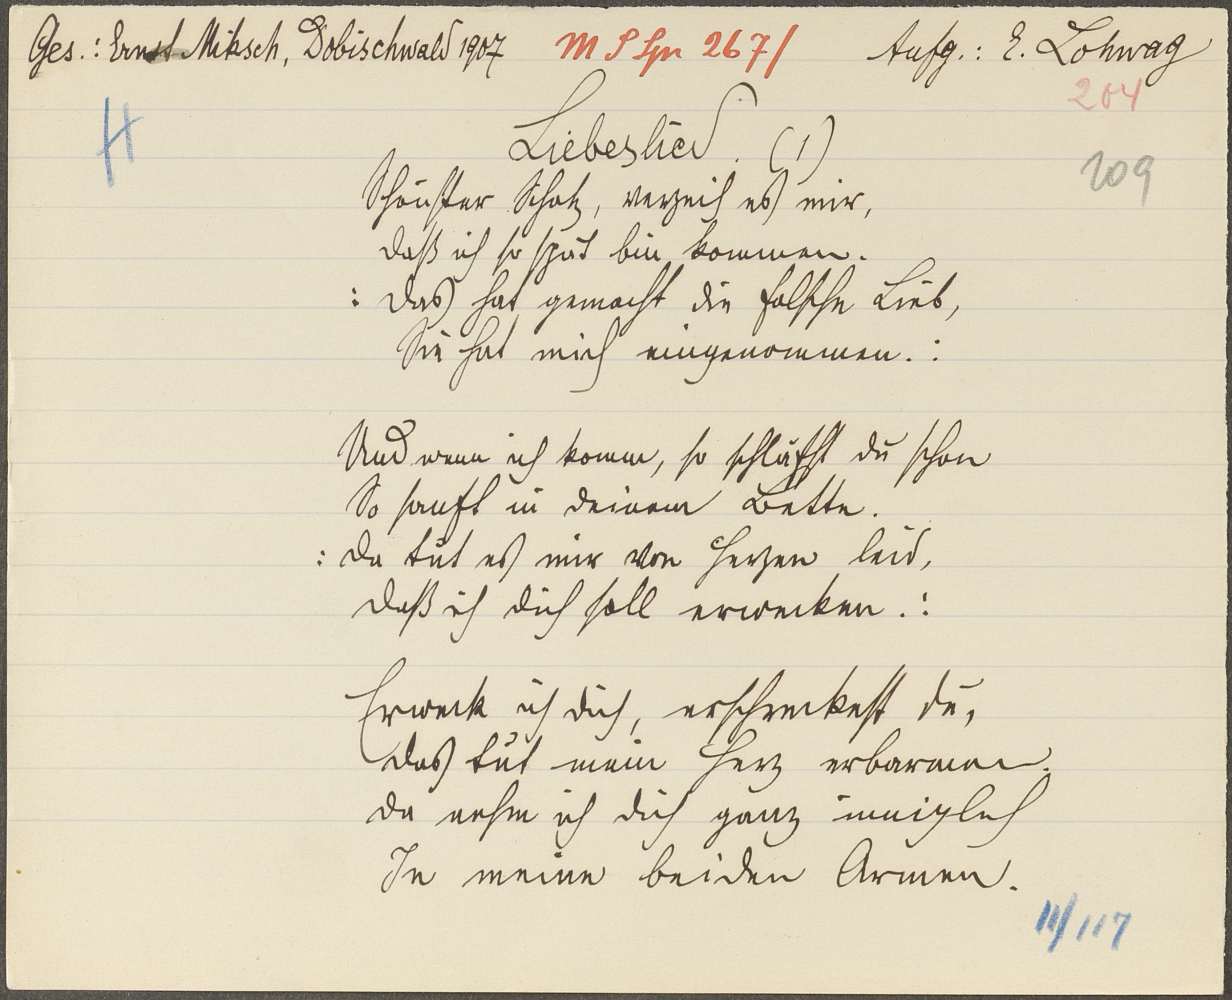 Ges.: Ernst Miksch, Dobischwald 1907 M S Spr 267/ Aufg.: E. Lohwag
204
H
Liebeslied. (1)
209
Schönster Schatz, verzeih es mir,
daß ich so spät bin kommen.
: Das hat gemacht die falsche Lieb,
Sie hat mich eingenommen. :
Und wenn ich komm, so schläfst du schon
So sanft in deinem Bette.
: Da tut es mir von Herzen leid,
daß ich dich soll erwecken. :
Erweck ich dich, erschreckest du,
das tut mein Herz erbarmen.
Da nehm ich dich ganz inniglich
In meine beiden Armen.
11/117